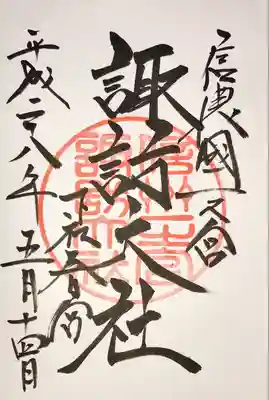 信濃國一之宮
諏訪大社
下社春宮
平成二八年 五月十四日